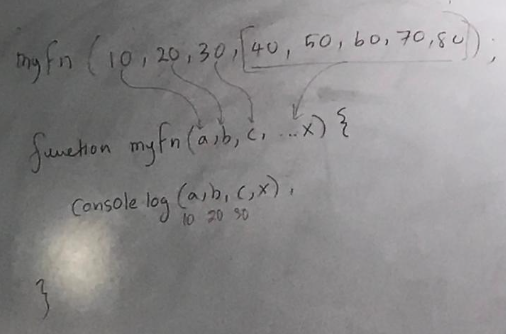 myfn (10, 20, 30, [40, 50, 60, 70, 80]);
function myfn(a,b, c, ...x) {
console log (a,b, c,x),
10 20 30
}